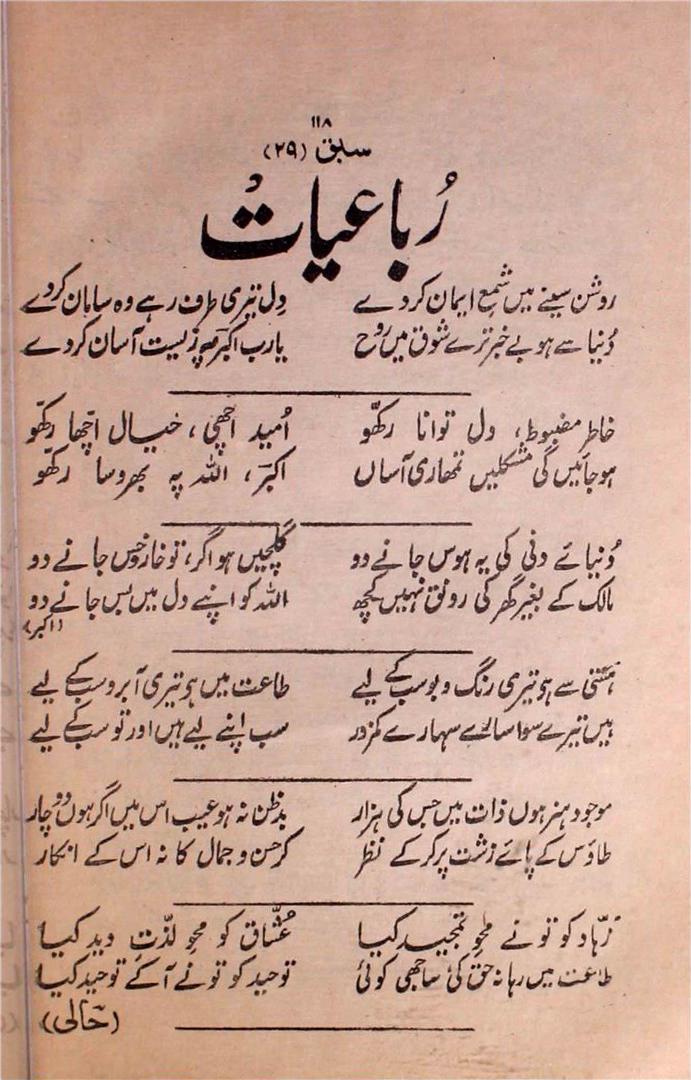 ۱۱۸
سبق (۲۹)
رُباعیات
روشن سینے میں شمعِ ایمان کر دے دِل تیری طرف رہے وہ سامان کر دے
دُنیا سے ہو بے خبر ترے شوق میں روح یا رب اکبر پہ زیست آسان کر دے
خاطر مضبوط، دل توانا رکھّو اُمید اچھی، خیال اچّھا رکھّو
ہو جائیں گی مشکلیں تمھاری آساں اکبر، اللہ پہ بھروسا رکھّو
دُنیائے دنی کی یہ ہوس جانے دو گلچیں ہو اگر، تو خار و خس جانے دو
مالک کے بغیر گھر کی رونق نہیں کچھ اللہ کو اپنے دل میں بس جانے دو
(اکبر)
ہستی سے ہو تیری رنگ و بو سب کے لیے طاعت میں ہو تیری آبرو سب کے لیے
ہیں تیرے سوا سارے سہارے کمزور سب اپنے لیے ہیں اور تو سب کے لیے
موجود ہنر ہوں ذات میں جس کی ہزار بدظن نہ ہو عیب اس میں اگر ہوں دو چار
طاؤس کے پائے زشت پر کر کے نظر کر حسن و جمال کا نہ اس کے انکار
زہّاد کو تو نے محوِ تمجید کیا عُشّاق کو محوِ لذّتِ دید کیا
طاعت میں رہا نہ حق کی ساجھی کوئی توحید کو تو نے آ کے توحید کیا
(حالی)